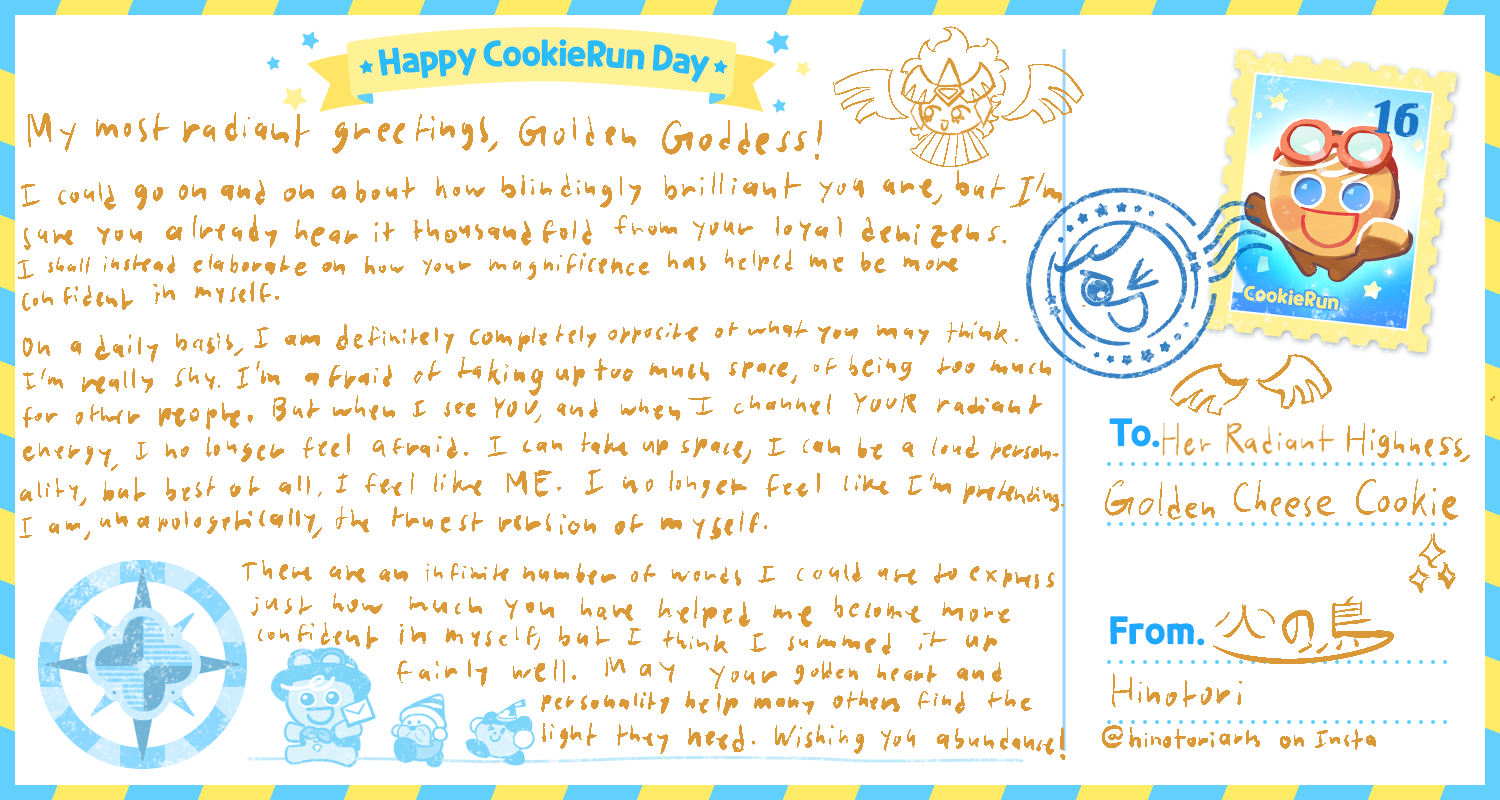 Happy CookieRun Day
My most radiant greetings, Golden Goddess!
I could go on and on about how blindingly brilliant you are, but I'm
sure you already hear it thousandfold from your loyal denizens.
I shall instead elaborate on how your magnificence has helped me be more
confident in myself.
On a daily basis, I am definitely completely opposite of what you may think.
I'm really shy. I'm afraid of taking up too much space, of being too much
for other people. But when I see YOU, and when I channel YOUR radiant
energy, I no longer feel afraid. I can take up space, I can be a loud person-
ality, but best of all, I feel like ME. I no longer feel like I'm pretending.
I am, unapologetically, the truest version of myself.
There are an infinite number of words I could use to express
just how much you have helped me become more
confident in myself, but I think I summed it up
fairly well. May your golden heart and
personality help many others find the
light they need. Wishing you abundance!
16
CookieRun
To. Her Radiant Highness,
Golden Cheese Cookie
From. 火の鳥
Hinotori
@hinotoriark on Insta